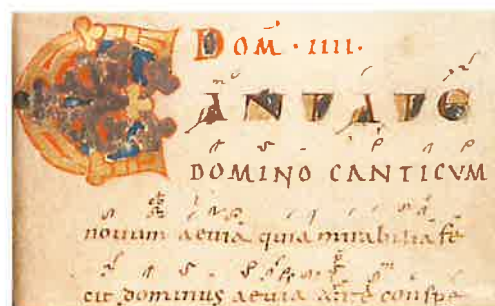 Dom̄ · IIII ·
CANTATE
DOMINO CANTICVM
nouum aeuia quia mirabilia fe
cit dominus aeuia ante conspe